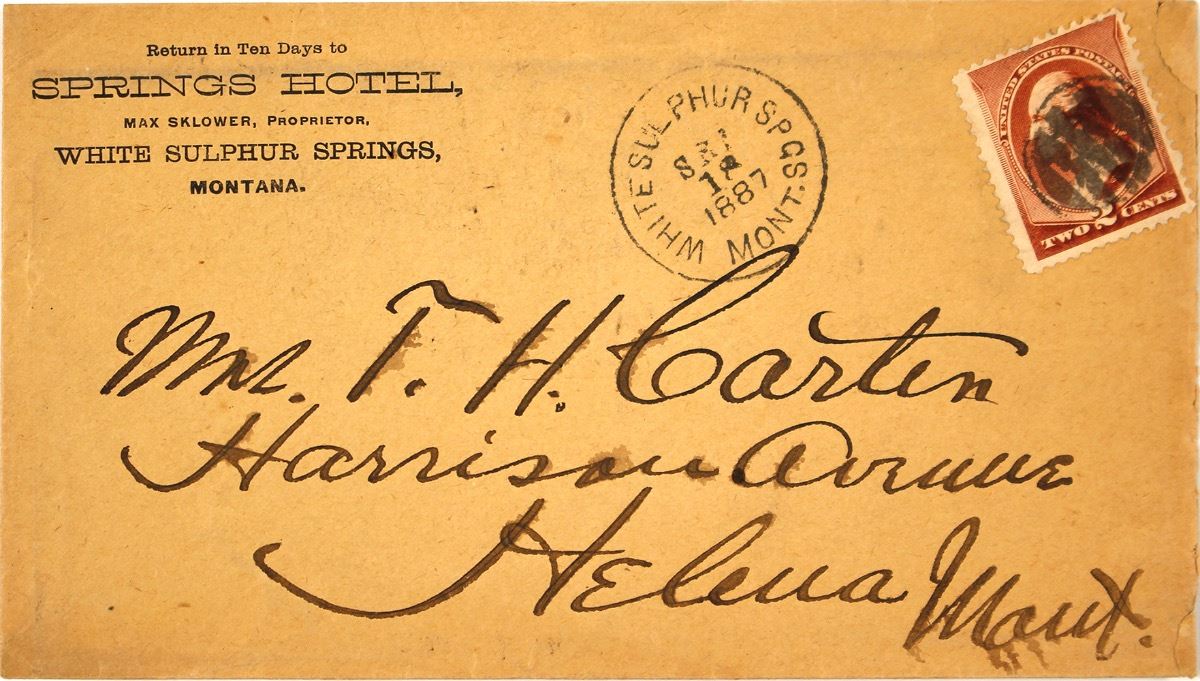 Return in Ten Days to
SPRINGS HOTEL,
MAX SKLOWER, PROPRIETOR,
WHITE SULPHUR SPRINGS,
MONTANA.
WHITE SULPHUR SPGS. MONT.
1887
UNITED STATES POSTAGE
TWO 2 CENTS
Mrs. T. H. Carter
Harrison Avenue
Helena Mont.